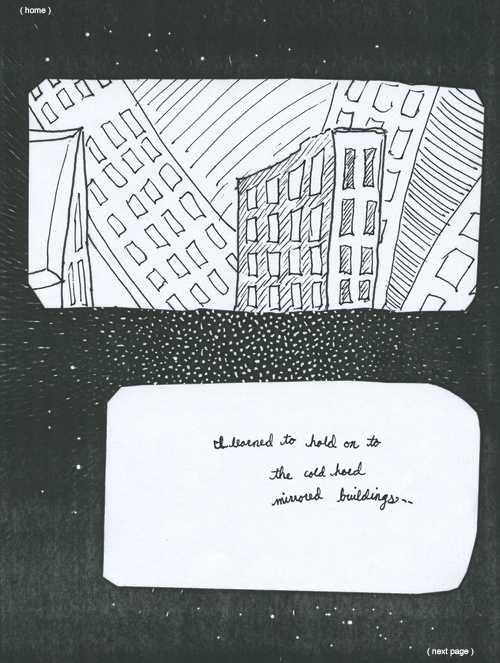 ( home )
I learned to hold on to
the cold hard
mirrored buildings...
( next page )